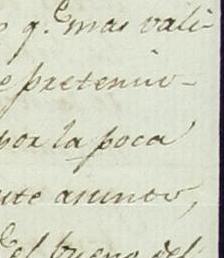 q.e mas vali-
pretenio-
por la poca
asunto,
el bueno del